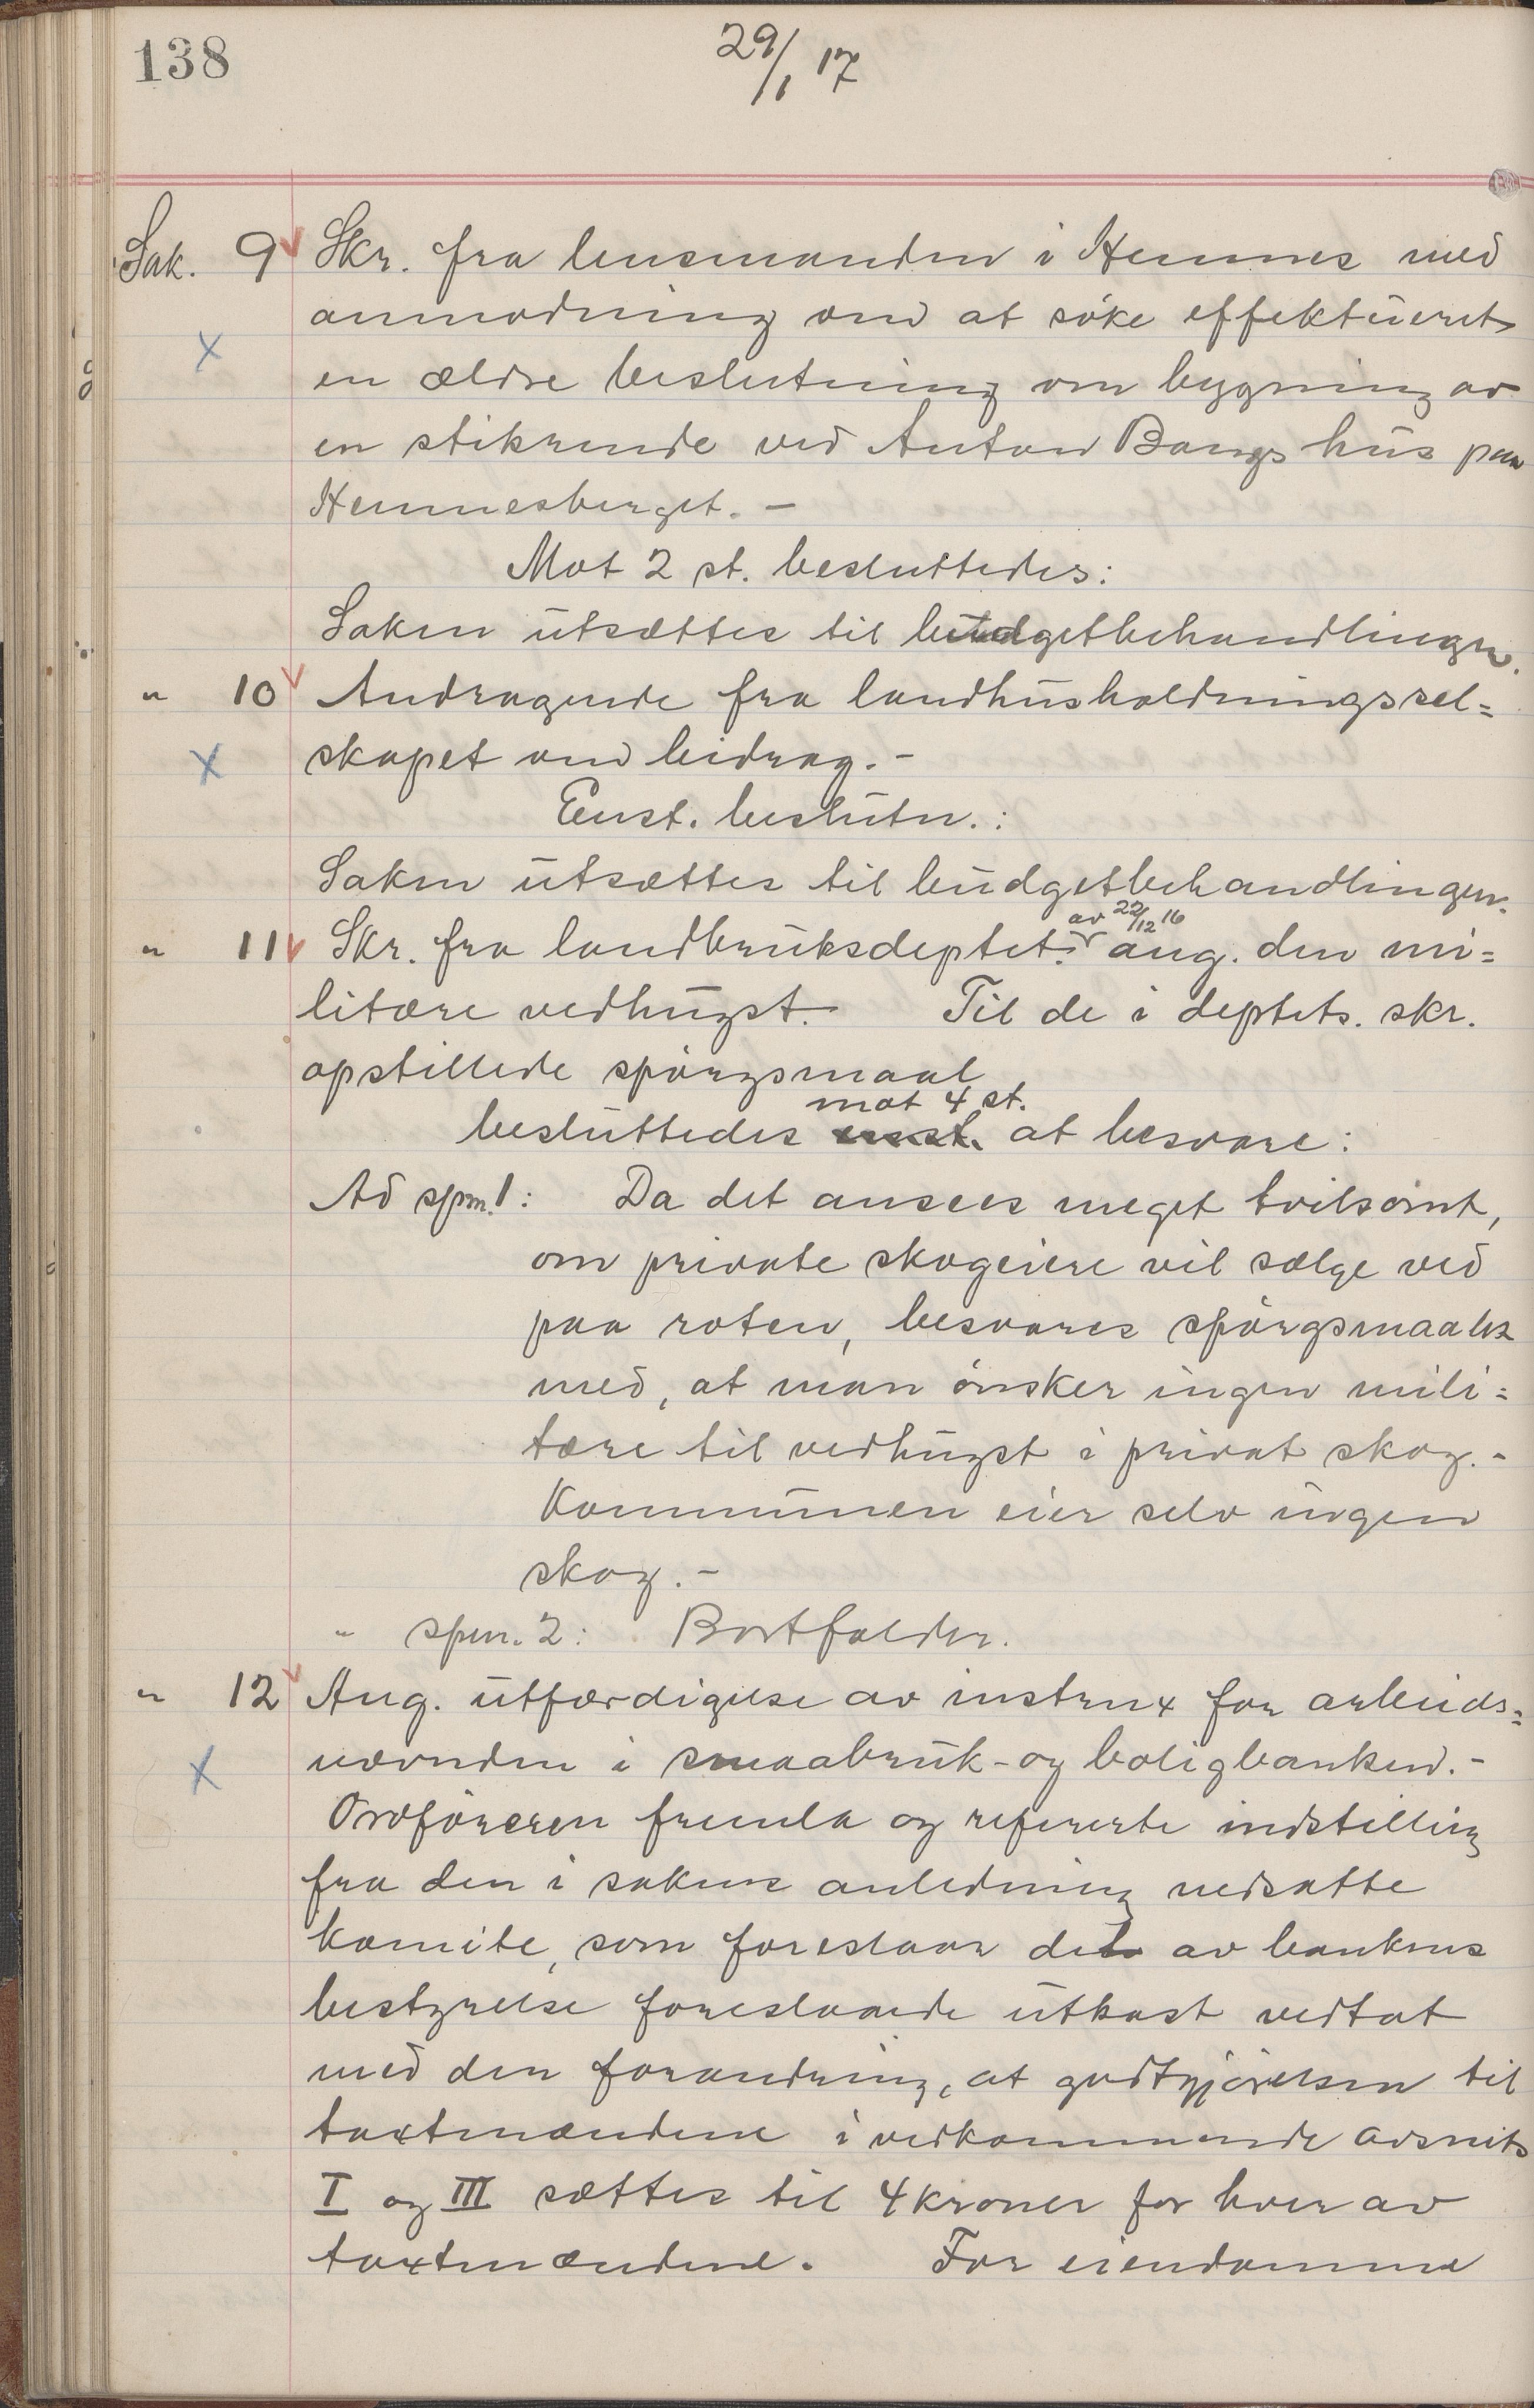 138
29/1 17
Sak. 9 Skr. fra lensmanden i Hemnes med
anmodning om at söke effektueret
en ældre beslutning om bygning av
en stikrende ved Anton Bangs hus paa
Hemnesberget. –
Mot 2 st. besluttedes:
Saken utsættes til budgetbehandlingen.
" 10 Andragende fra landhusholdningssel=
skapet om bidrag. –
Enst. beslutn.:
Saken utsættes til budgetbehandlingen.
av 22/12 16
" 11 Skr. fra landbruksdeptet. ang. den mi=
litære vedhugst. Til de i deptets. skr.
opstillede spörgsmaal
mot 4 st.
besluttedes enst. at besvare:
Ad spm. 1: Da det ansees meget tvilsomt,
om private skogeiere vil sælge ved
paa roten, besvares spörgsmaalet
med, at man önsker ingen mili=
tære til vedhugst i privat skog. –
Kommunen eier selv ingen
skog. –
" spm. 2: Bortfalder.
" 12 Ang. utfærdigelse av instrux for arbeids=
nævnden i smaabruk- og boligbanken. –
Ordföreren fremla og refererte indstilling
fra den i sakens anledning nedsatte
komite, som foreslaar det av bankens
bestyrelse foreslaaede utkast vedtat
med den forandring, at godtgjörelsen til
taxtmændene i vedkommende avsnits
I og III sættes til 4 kroner for hver av
taxtmændene. For eiendomme